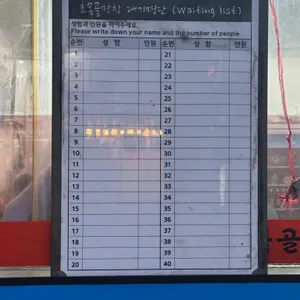 대기명단 (Waiting list)
성함과 인원을 적어주세요.
Please write down your name and the number of people
순번 성 함 인원 순번 성 함 인원
1 21
2 22
3 23
4 24
5 25
6 26
7 27
8 28
9 29
10 30
11 31
12 32
13 33
14 34
15 35
16 36
17 37
18 38
19 39
20 40
골